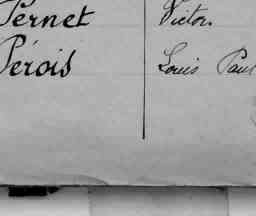 Pernet Victor
Pérois Louis Paul